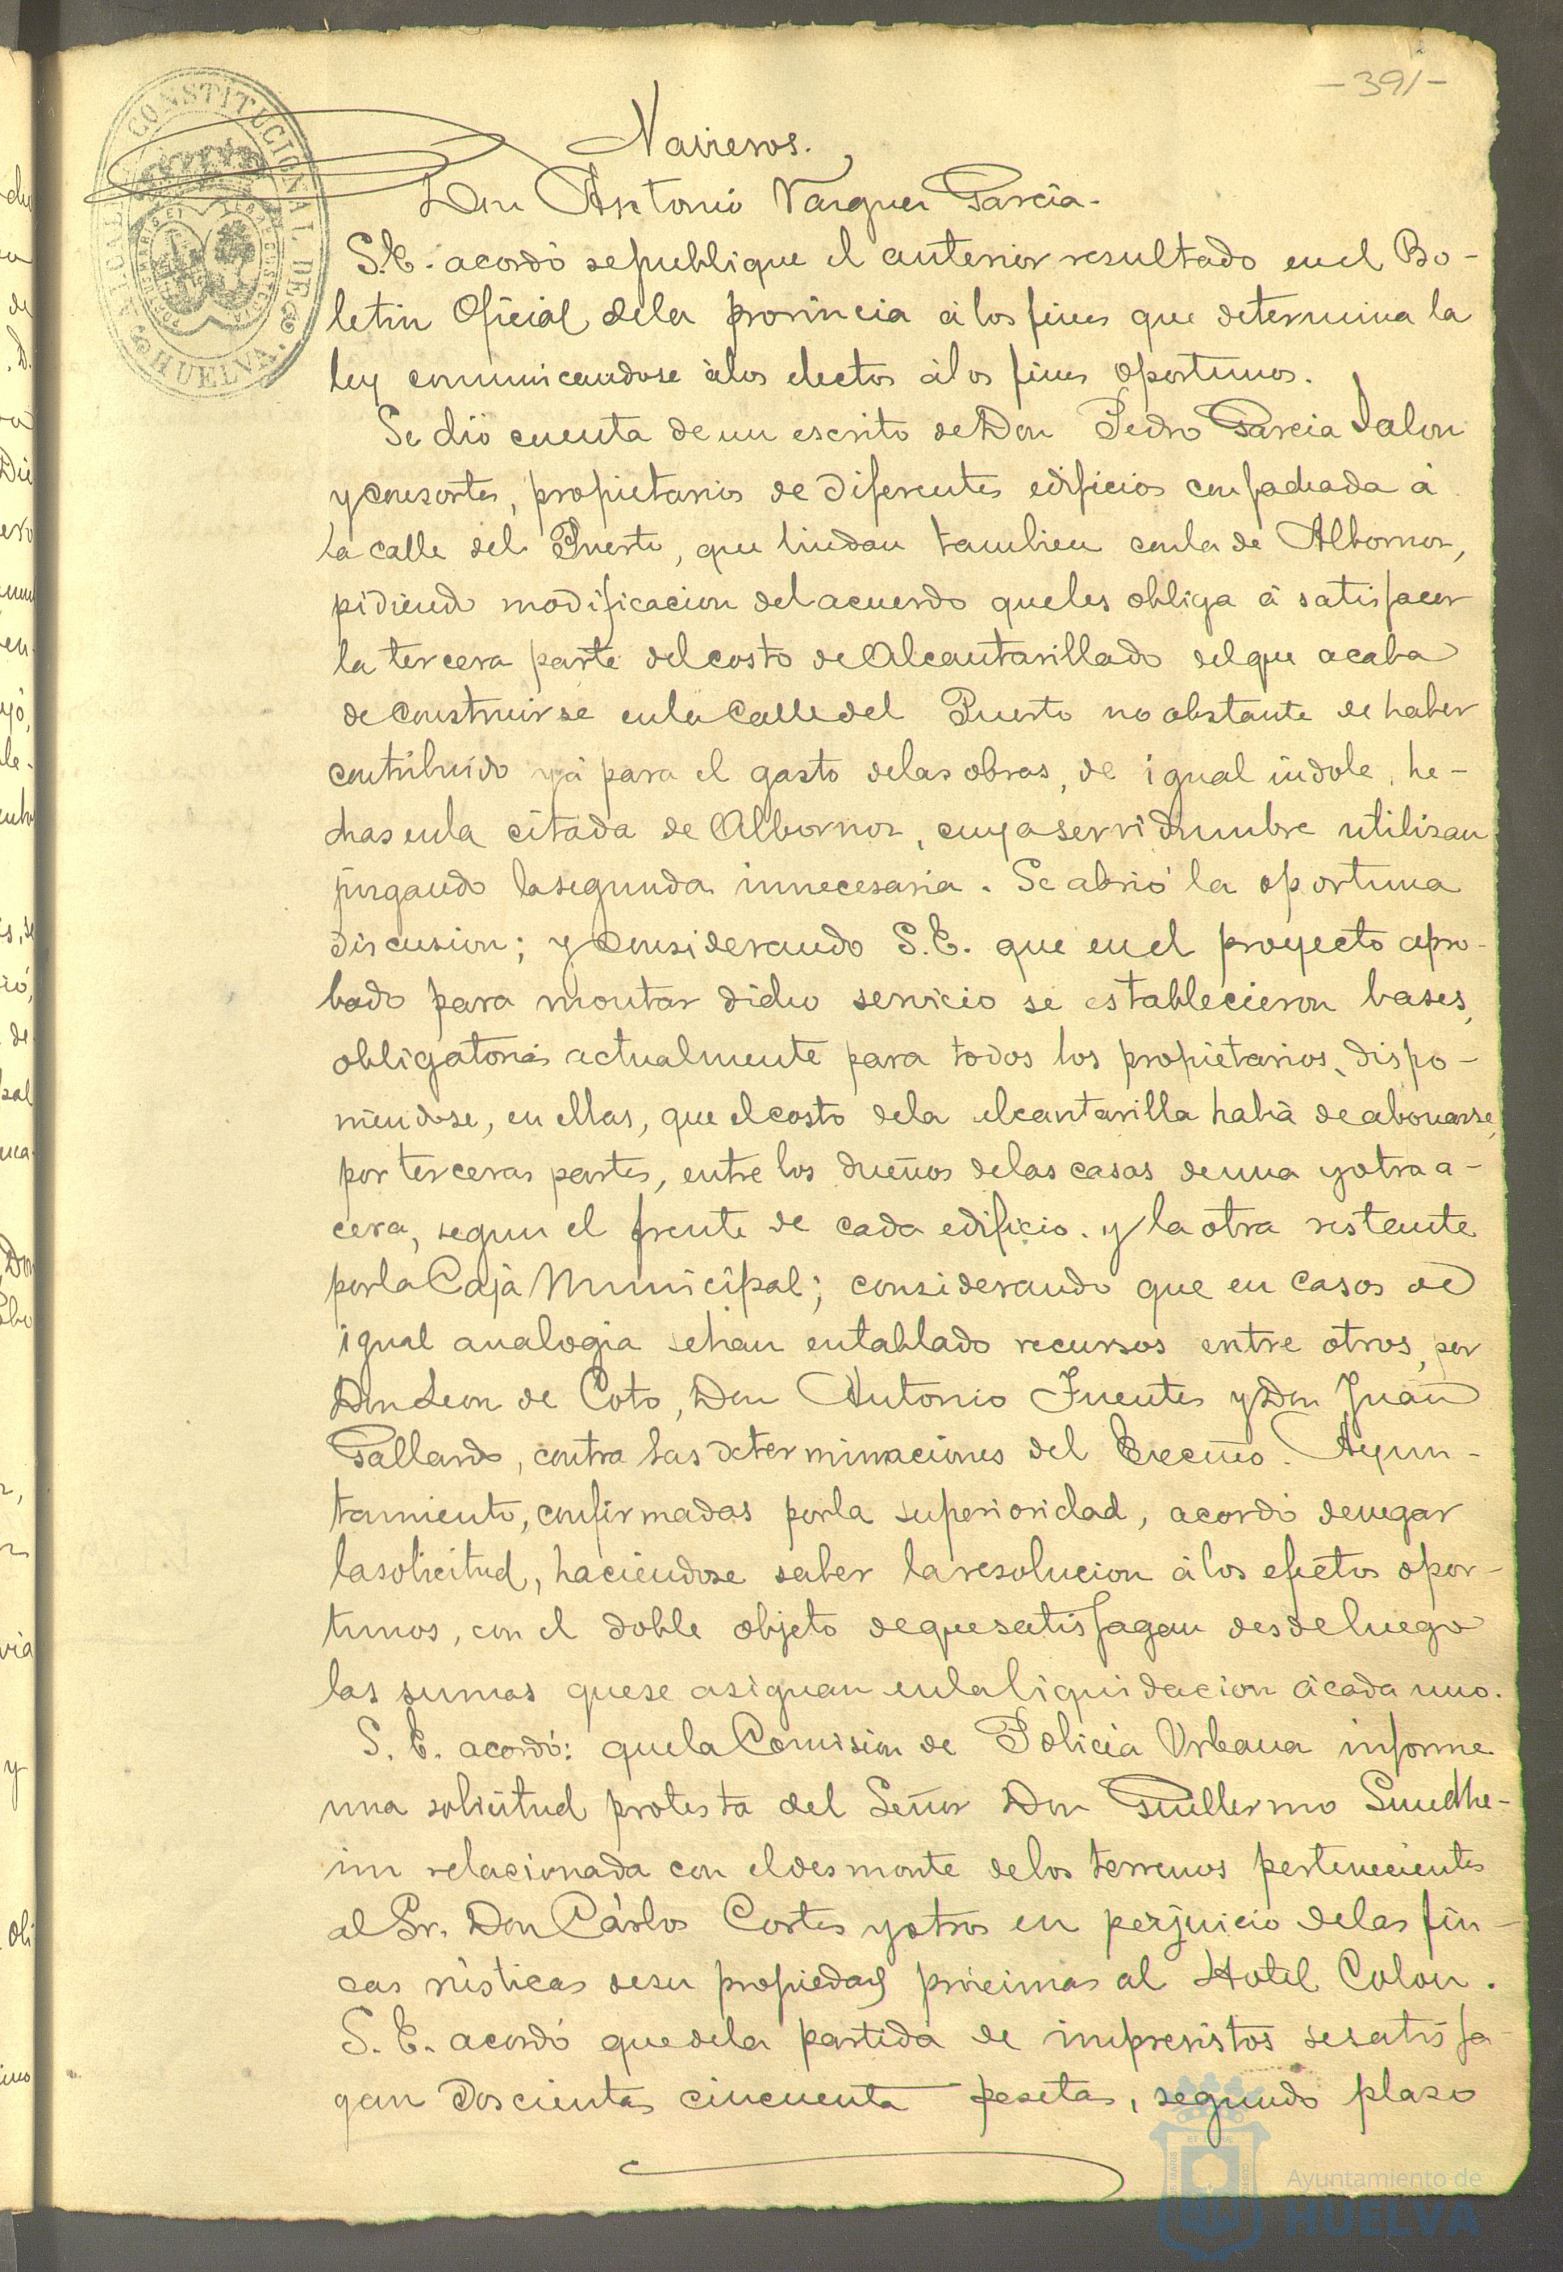 -39/-
ALCALDIA CONSTITUCIONAL DE HUELVA.
Navieros.
Don Antonio Vazquez Garcia.
S.E. acordó se publique el anterior resultado en el Bo-
letin Oficial de la provincia á los fines que determina la
ley comunicandose á los electos á los fines oportunos.
Se dió cuenta de un escrito de Don Pedro Garcia Jalon
y consortes, propietarios de diferentes edificios con fachada á
la calle del Puerto, que lindan tambien con la de Albornoz,
pidiendo modificacion del acuerdo que les obliga á satisfacer
la tercera parte del costo de Alcantarillado del que acaba
de construirse en la Calle del Puerto no obstante de haber
contribuido yá para el gasto de las obras, de igual indole, he-
chas en la citada de Albornoz, cuya servidumbre utilizan
juzgando la segunda innecesaria. Se abrió la oportuna
discusion; y considerando S.E. que en el proyecto apro-
bado para montar dicho servicio se establecieron bases,
obligatorias actualmente para todos los propietarios, dispo-
niendose, en ellas, que el costo de la alcantarilla habia de abonarse,
por terceras partes, entre los dueños de las casas de una y otra a-
cera, segun el frente de cada edificio. y la otra restante
por la Caja Municipal; considerando que en casos de
igual analogia se han entablado recursos entre otros, por
Don Leon de Coto, Don Antonio Fuentes y Don Juan
Gallardo, contra las determinaciones del Excmo. Ayun-
tamiento, confirmadas por la superioridad, acordó denegar
la solicitud, haciendose saber la resolucion á los efectos opor-
tunos, con el doble objeto de que satisfagan desde luego
las sumas que se asignan en la liquidacion á cada uno.
S. E. acordó: que la Comision de Policia Urbana informe
una solicitud protesta del Señor Don Guillermo Sundhe-
im relacionada con el desmonte de los terrenos pertenecientes
al Sr. Don Cárlos Cortes y otros en perjuicio de las fin-
cas rústicas de su propiedad próximas al Hotel Colon.
S. E. acordó que de la partida de imprevistos se satisfa-
gan Doscientas cincuenta pesetas, segundo plazo
Ayuntamiento de
HUELVA